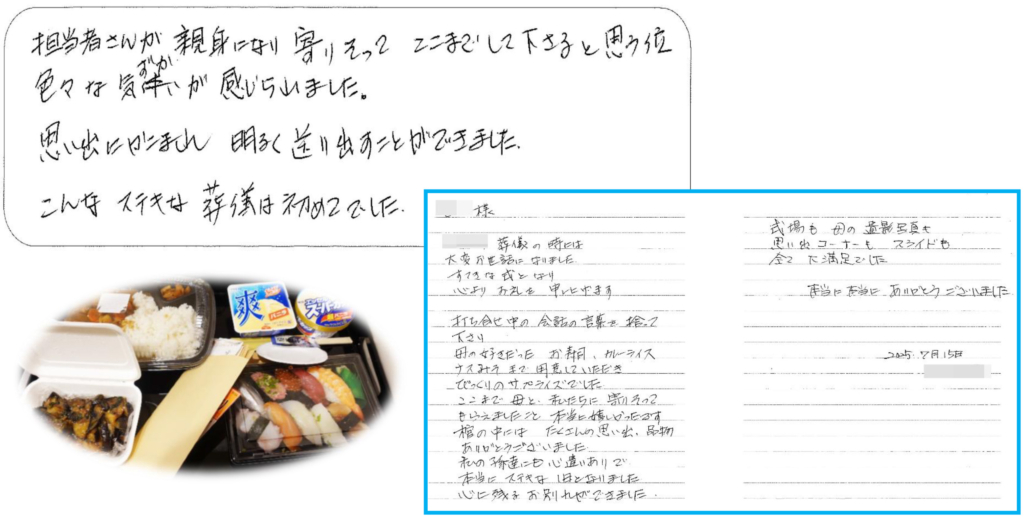 担当者さんが 親身になり 寄りそって ここまでして下さると思う位
色々な気づかいが 感じられました。
思い出にかこまれ 明るく送り出すことができました.
こんな ステキな 葬儀は初めてでした.
様
葬儀の時には
大変お世話になりました
すてきな式となり
心より お礼を 申し上げます
打ち合せ中の 会話の言葉を 拾って
下さり
母の好きだった お寿司、カレーライス
ナスみそ まで 用意していただき
びっくりのサプライズでした
ここまで 母と、私たちに 寄りそって
もらえましたこと 本当に嬉しかったです
棺の中には たくさんの思い出、品物
ありがとうございました
私の孫達にも心遣いありで
本当に ステキな となりました
心に残る お別れができました.
式場も 母の 遺影写真も
思い出コーナーも スライドも
全て 大満足でした
本当に本当に ありがとうございました
2025. 7月15日
爽
バニラ